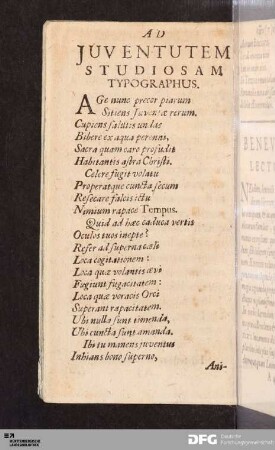 AD
JUVENTUTEM
STUDIOSAM
TYPOGRAPHUS.
AGe nunc precor piarum
Sitiens Juventæ rerum,
Cupiens salutis undas
Bibere ex aqua perenni,
Sacra quam caro profudit
Habitantis astra Christi.
Celere fugit volatu
Properatque cuncta secum
Resecare falcis ictu
Nimium rapax Tempus.
Quid ad hæc caduca vertis
Oculos tuos inepte?
Refer ad superna cæli
Loca cogitationem:
Loca quæ volantis ævi
Fugiunt fugacitatem:
Loca quæ voracis Orci
Superant rapacitatem.
Ubi nulla sunt timenda,
Ubi cuncta sunt amanda.
Ibi tu manens juventus
Inhians bono superno,
Ani-
BENEV
LECT
DFG